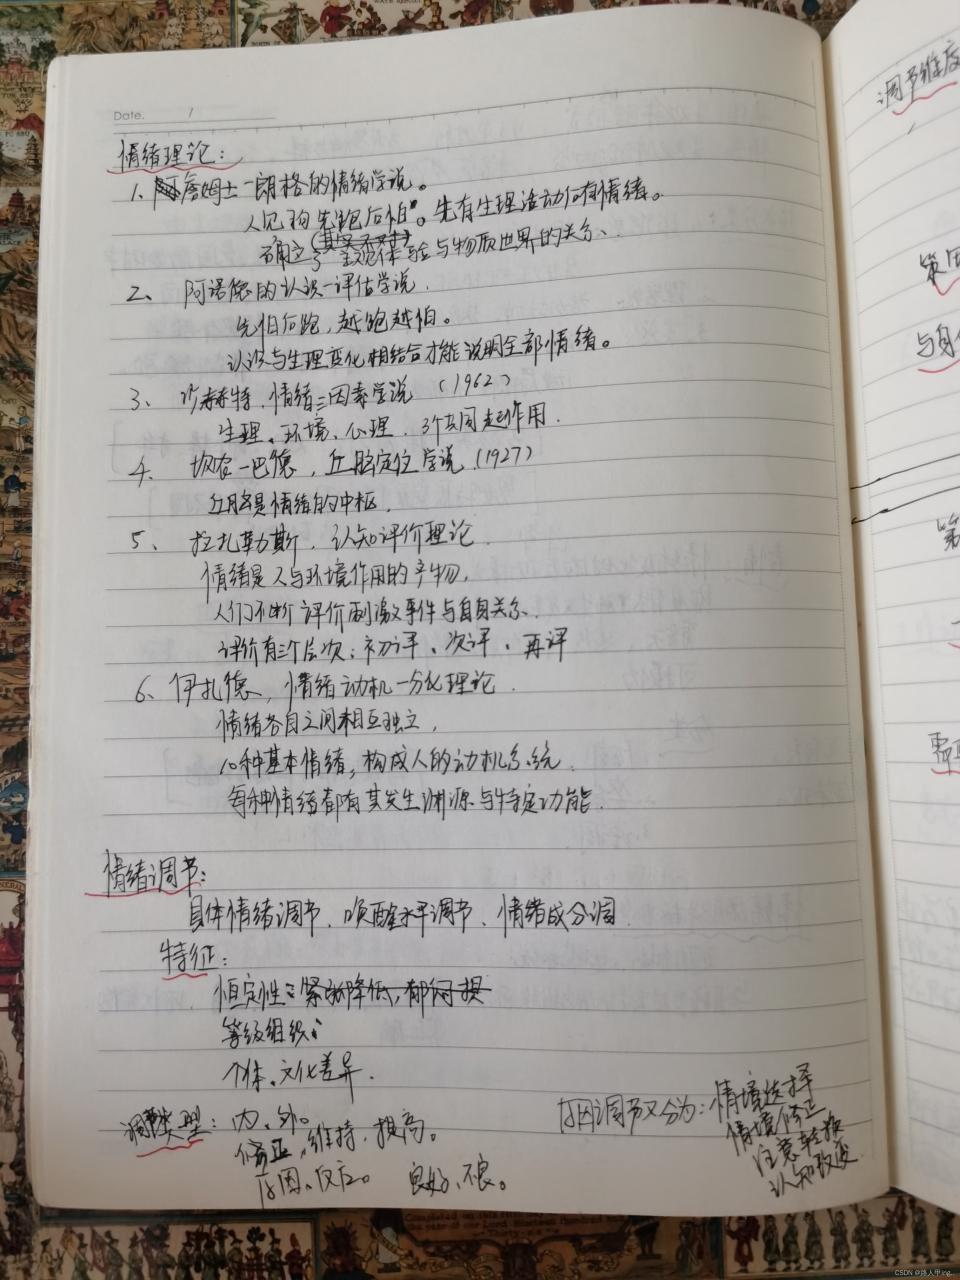 Date.
情绪理论:
1、詹姆士一朗格的情绪学说。
人见狗先跑后怕"。先有生理活动后有情绪。
(其实不对)
确立了主观体验与物质世界的关系、
2、阿诺德的认识一评估学说.
先怕后跑,越跑越怕。
认识与生理变化相结合才能说明全部情绪。
3、沙赫特.情绪三因素学说(1962)
生理、环境、心理.3个共同起作用.
4、坎农一巴德,丘脑定位学说(1927)
丘脑是情绪的中枢.
5、拉扎勒斯,认知评价理论.
情绪是人与环境作用的产物,
人们不断评价刺激事件与自身关系.
评价有三个层次:初评、次评、再评
6、伊扎德,情绪动机一分化理论.
情绪各自之间相互独立,
10种基本情绪,构成人的动机系统.
每种情绪都有其发生渊源与特定功能.
情绪调节:
具体情绪调节、唤醒水平调节、情绪成分调
特征:
恒定性:紧张降低,郁闷提
等级组织:
个体、文化差异.
调节类型:内、外。
修正,维持,提高。
原因、反应。 良好、不良。
原因调节又分为:情境选择
情境修正
注意转换
认知改变.
调节维度
第
与自
CSDN @路人甲ing..